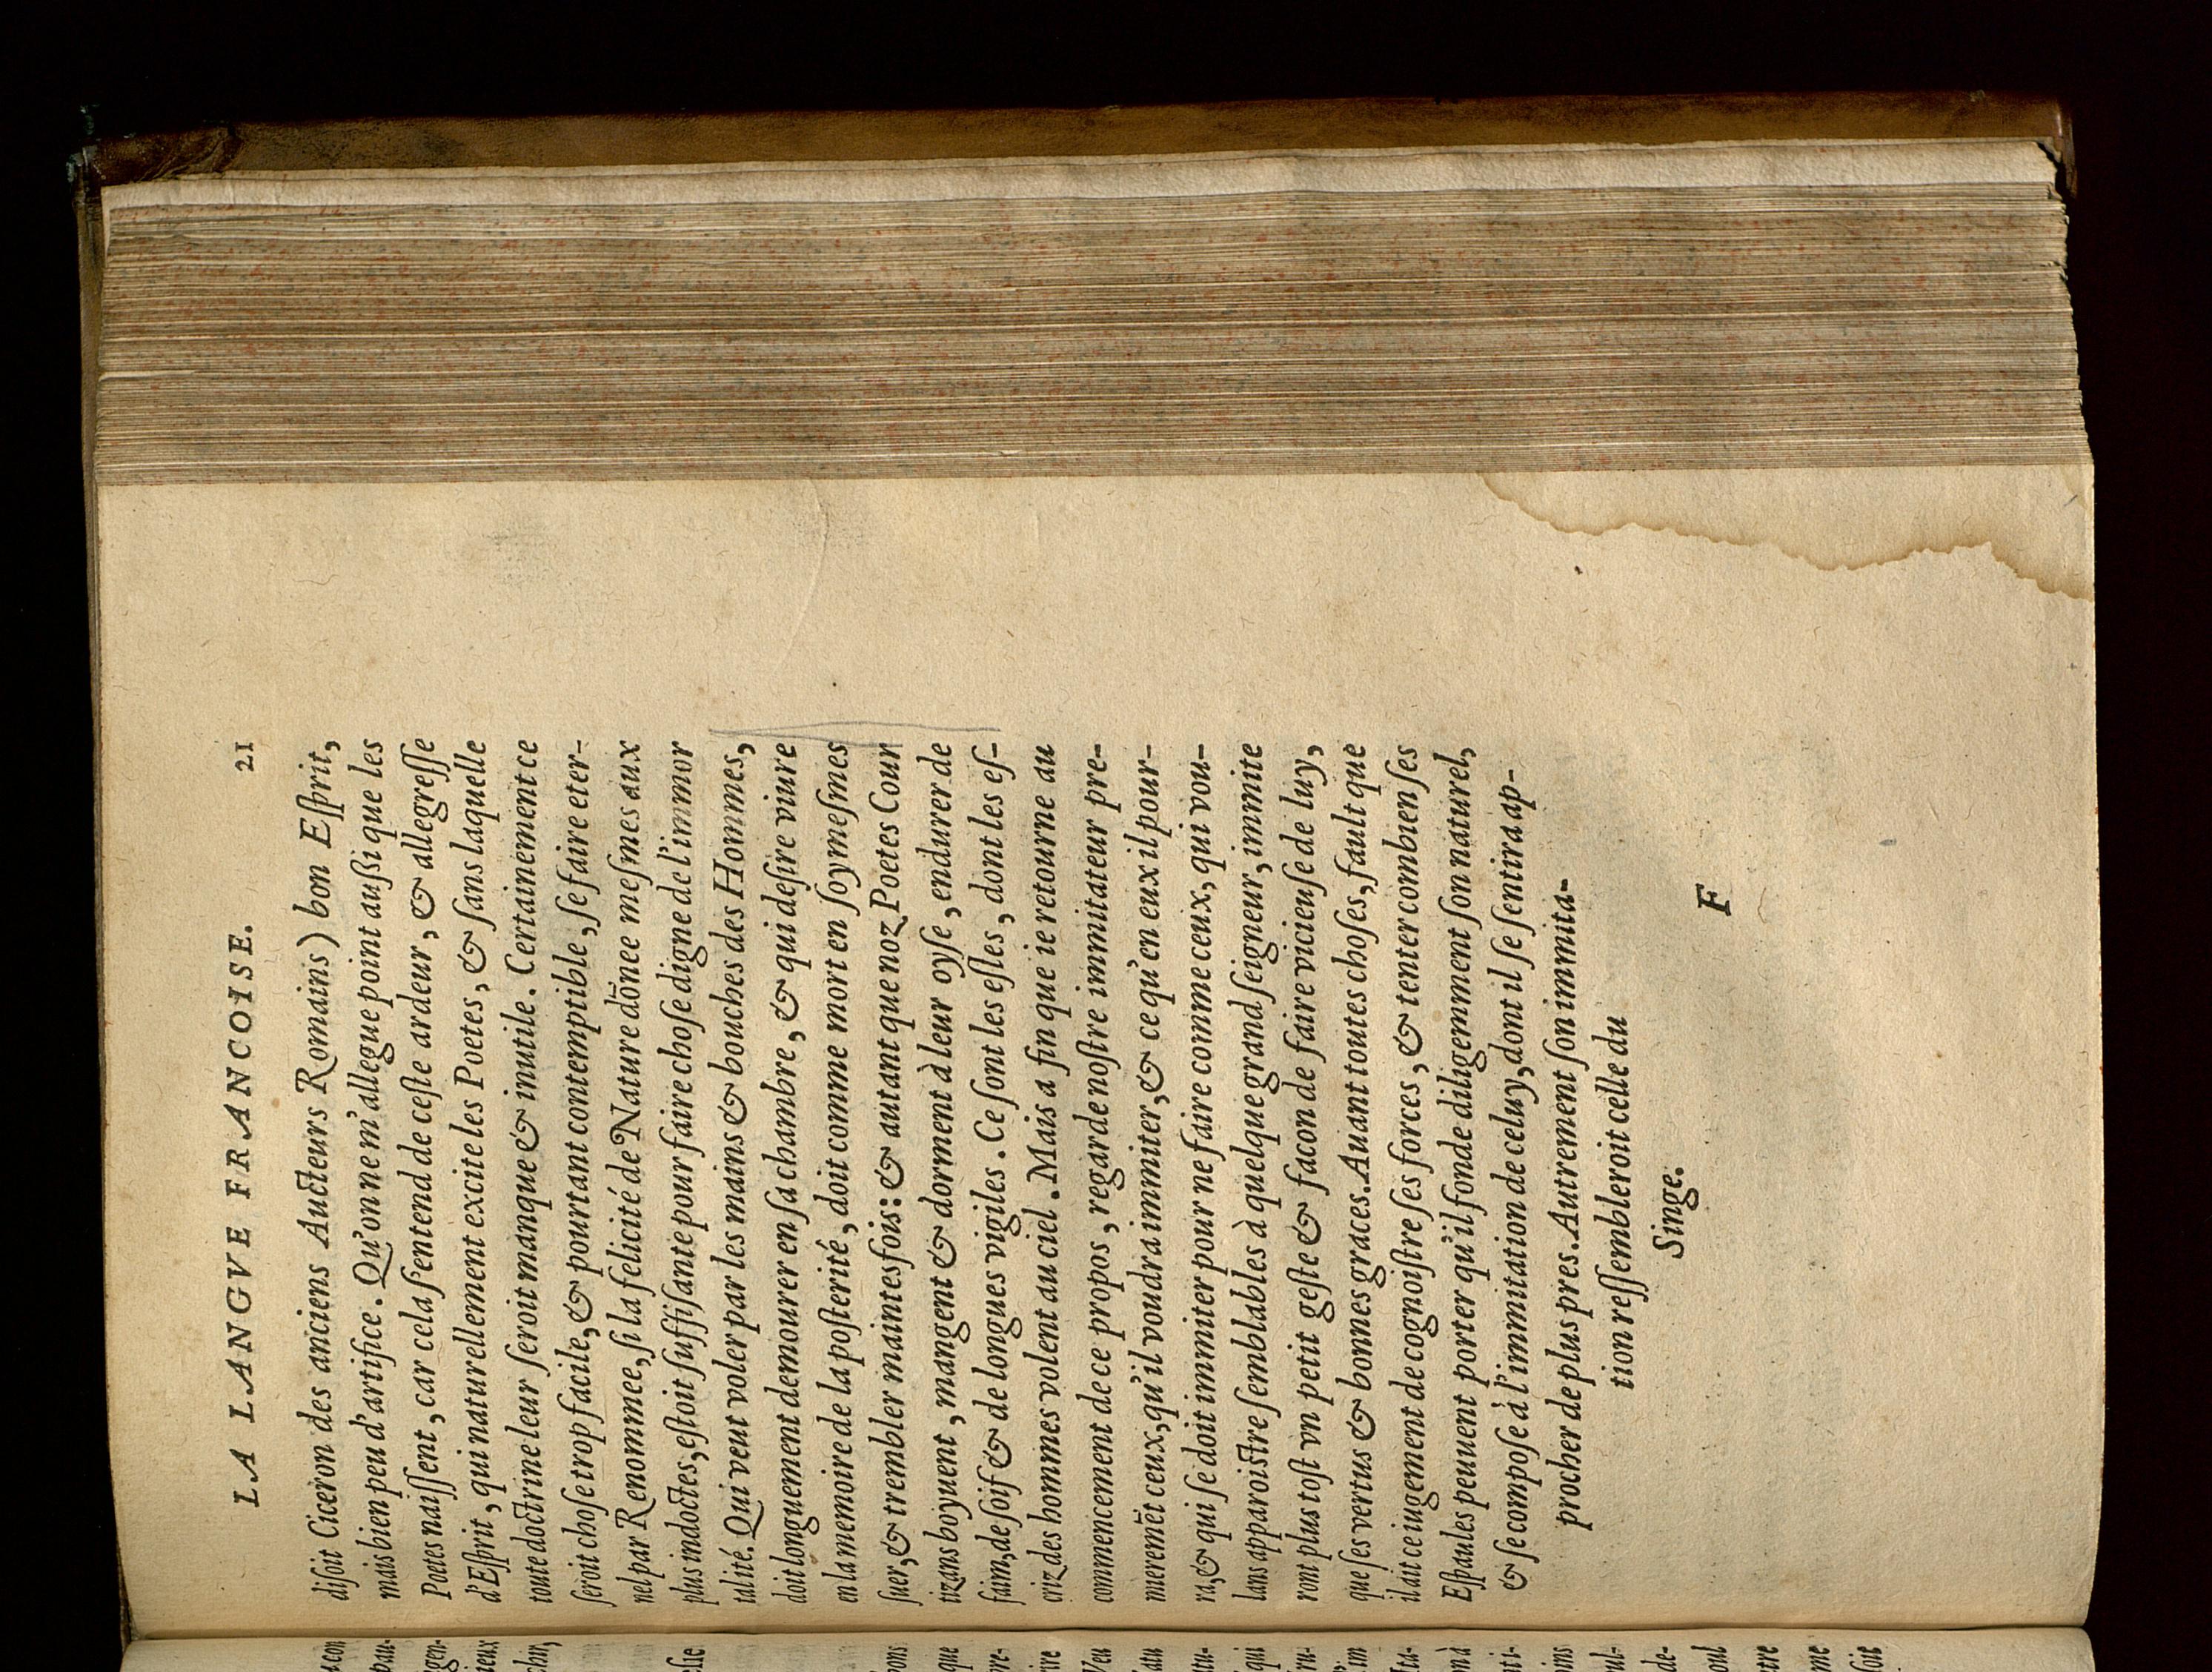 LA LANGVE FRANCOISE. 21
diſoit Ciceron des anciens Aucteurs Romains) bon Eſprit,
mais bien peu d'artifice. Qu'on ne m'allegue point auſsi que les
Poetes naiſſent, car cela ſ'entend de ceſte ardeur, & allegreſſe
d'Eſprit, qui naturellement excite les Poetes, & ſans laquelle
toute doctrine leur ſeroit manque & inutile. Certainement ce
ſeroit choſe trop facile, & pourtant contemptible, ſe faire eter-
nel par Renommee, ſi la felicité de Nature dõnee meſmes aux
plus indoctes, eſtoit ſuffiſante pour faire choſe digne de l'immor
talité. Qui veut voler par les mains & bouches des Hommes,
doit longuement demourer en ſa chambre, & qui deſire viure
en la memoire de la poſterité, doit comme mort en ſoymeſmes
ſuer, & trembler maintesfois: & autant que noz Poetes Cour
tizans boyuent, mangent & dorment à leur oyſe, endurer de
faim, de ſoif & de longues vigiles. Ce ſont les eſles, dont les eſ-
criz des hommes volent au ciel. Mais a fin que ie retourne au
commencement de ce propos, regarde noſtre immitateur pre-
mieremẽt ceux, qu'il voudra immiter, & ce qu'en eux il pour-
ra, & qui ſe doit immiter pour ne faire comme ceux, qui vou-
lans apparoiſtre ſemblables à quelque grand ſeigneur, immite
ront plus toſt vn petit geſte & facon de faire vicieuſe de luy,
que ſes vertus & bonnes graces. Auant toutes choſes, fault que
il ait ce iugement de cognoiſtre ſes forces, & tenter combien ſes
Eſpaules peuuent porter qu'il ſonde diligemment ſon naturel,
& ſe compoſe à l'immitation de celuy, dont il ſe ſentira ap-
procher de plus pres. Autrement ſon immita-
tion reſſembleroit celle du
Singe.
F